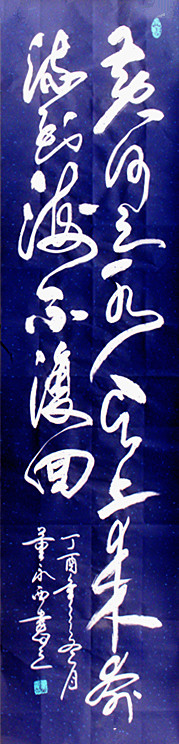 黄河之水天上来奔
流到海不復回
丁酉年之冬月
董永西書